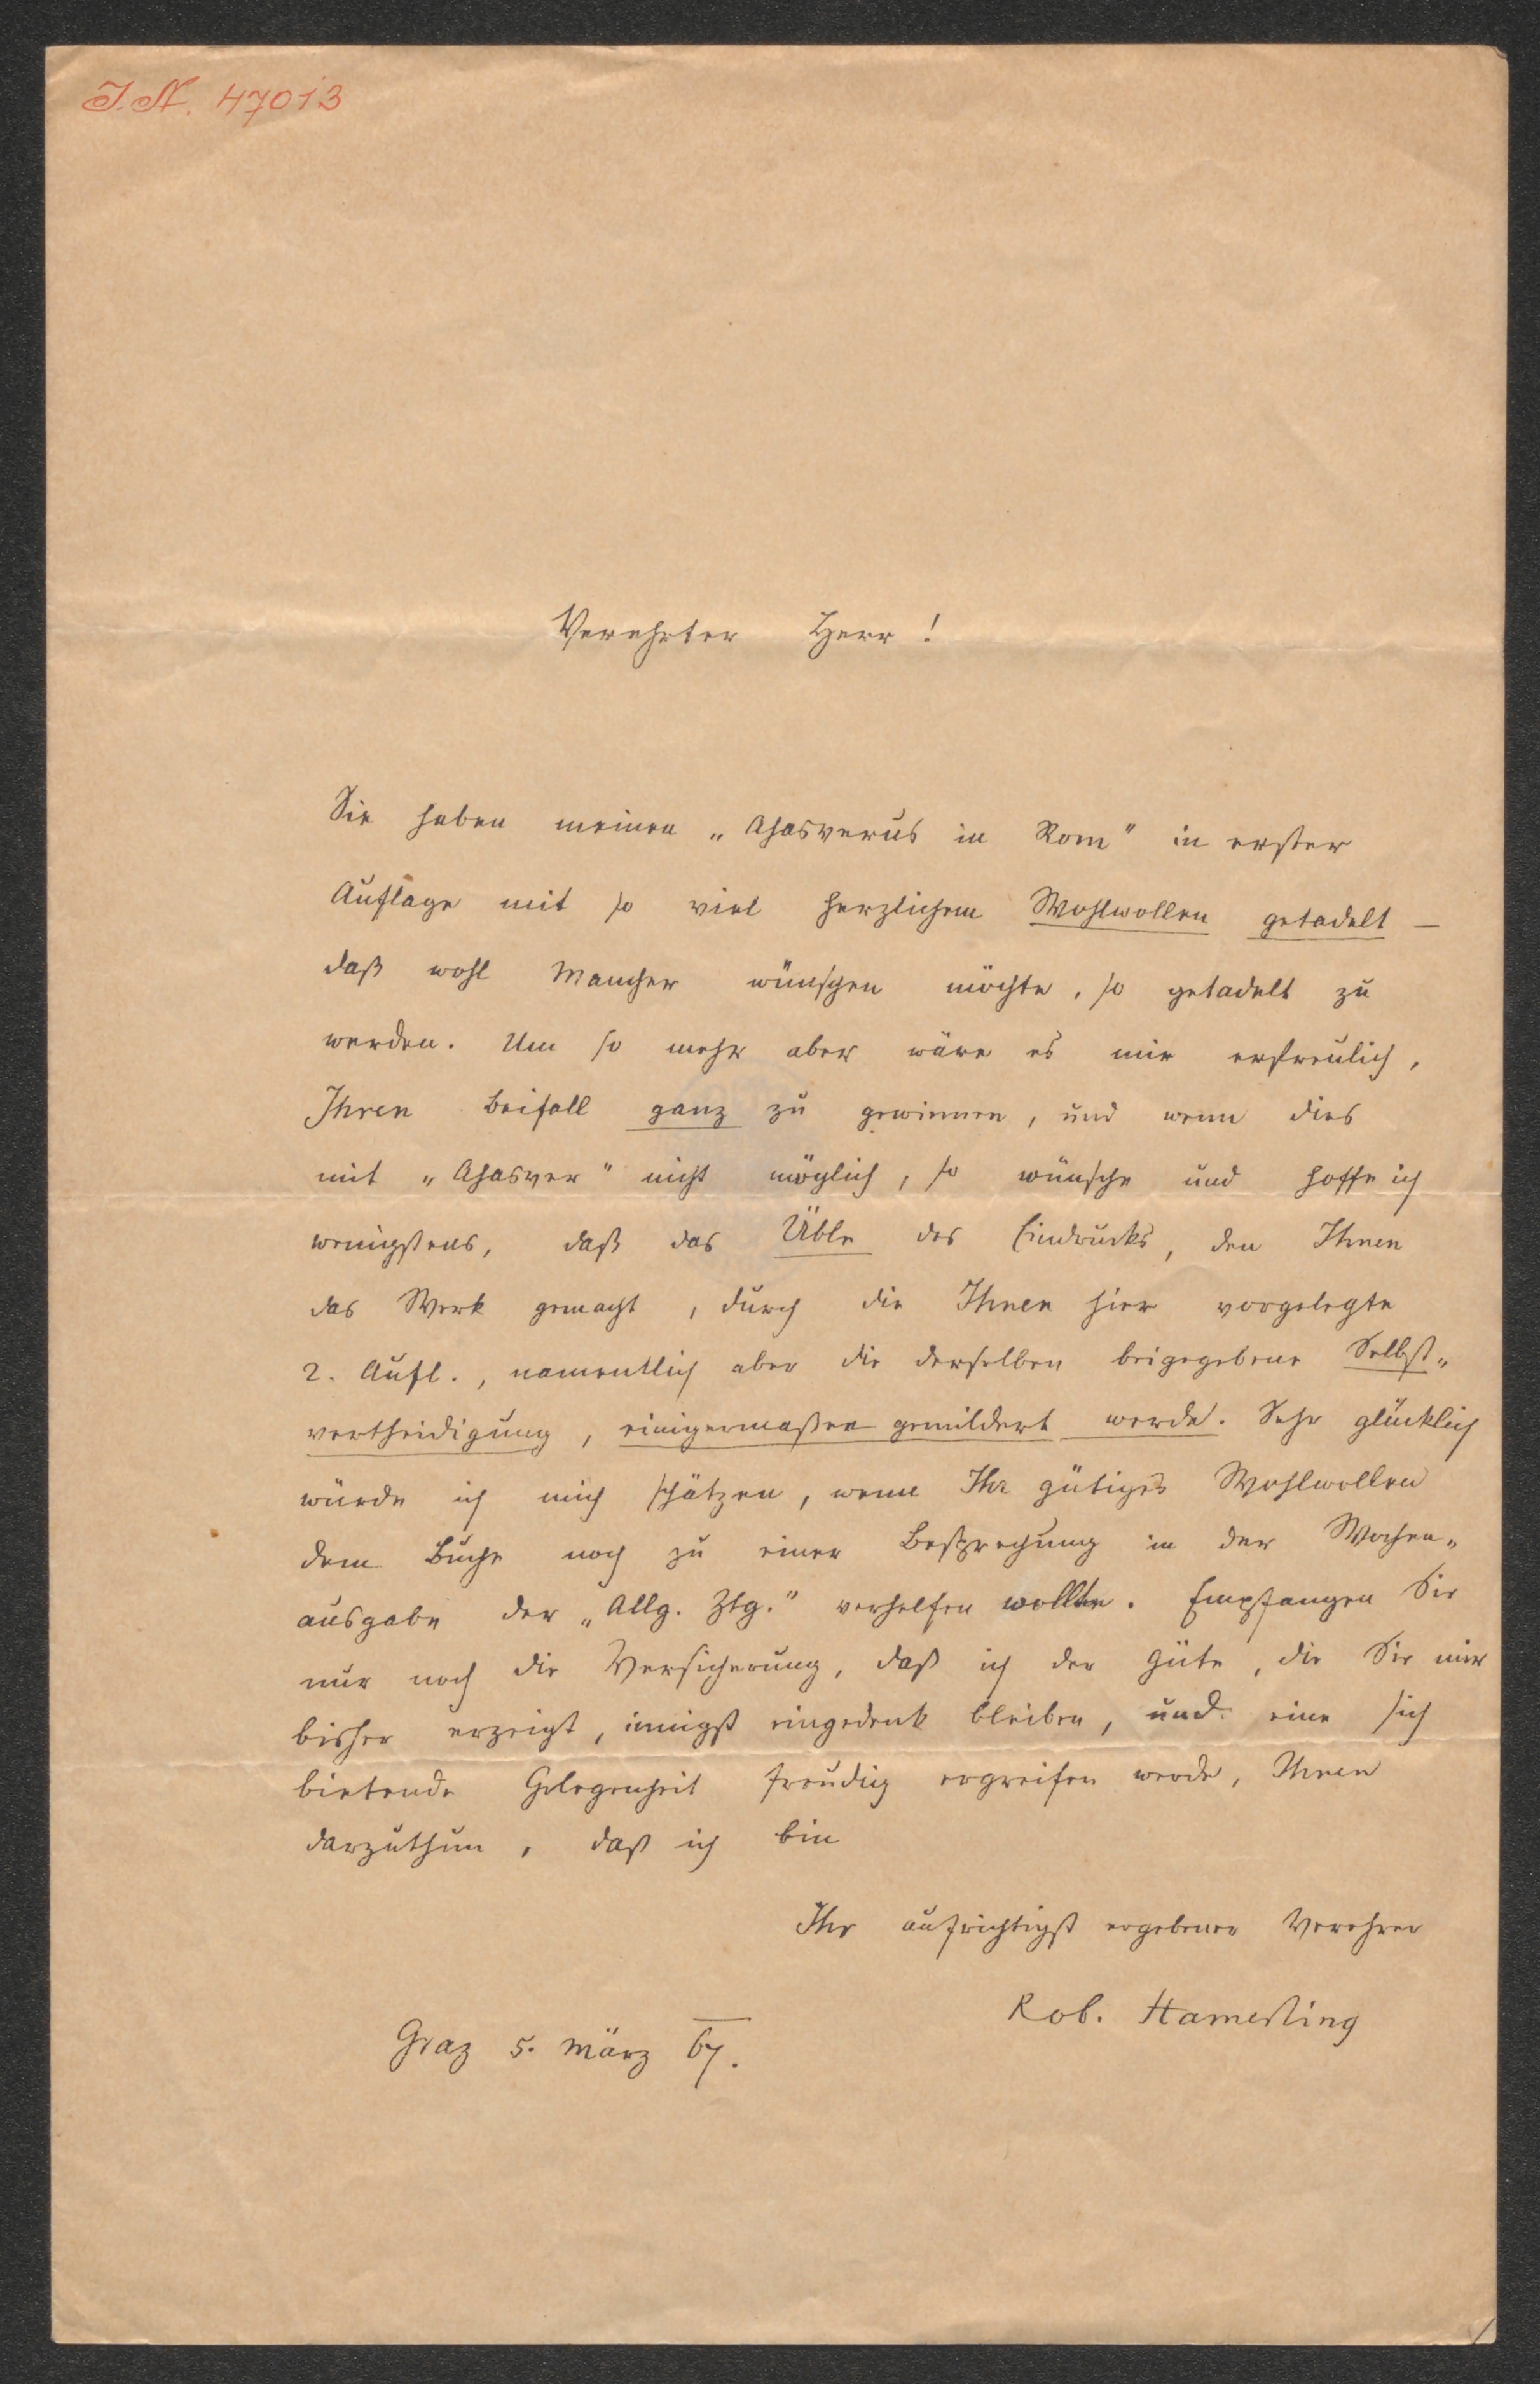 I.N. 47013
Verehrter Herr!
Sie haben meinen „Ahasverus in Rom" in erster
Auflage mit so viel herzlichem Wohlwollen getadelt –
daß wohl Mancher wünschen möchte, so getadelt zu
werden. Um so mehr aber wäre es mir erfreulich,
Ihren Beifall ganz zu gewinnen, und wenn dies
mit „Ahasver" nicht möglich, so wünsche und hoffe ich
wenigstens, daß das Üble des Eindrucks, den Ihnen
das Werk gemacht, durch die Ihnen hier vorgelegte
2. Aufl., namentlich aber die derselben beigegebene Selbst-
vertheidigung, einigermaßen gemildert werde. Sehr glücklich
würde ich mich schätzen, wenn Ihr gütiges Wohlwollen
dem Buche noch zu einer Besprechung in der Wochen-
ausgabe der „Allg. Ztg." verhelfen wollte. Empfangen Sie
nur noch die Versicherung, daß ich der Güte, die Sie mir
bisher erzeigt, innigst eingedenk bleiben, und eine sich
bietende Gelegenheit freudig ergreifen werde, Ihnen
darzuthun, daß ich bin
Ihr aufrichtigst ergebener Verehrer
Rob. Hamerling
Graz 5. März 67.